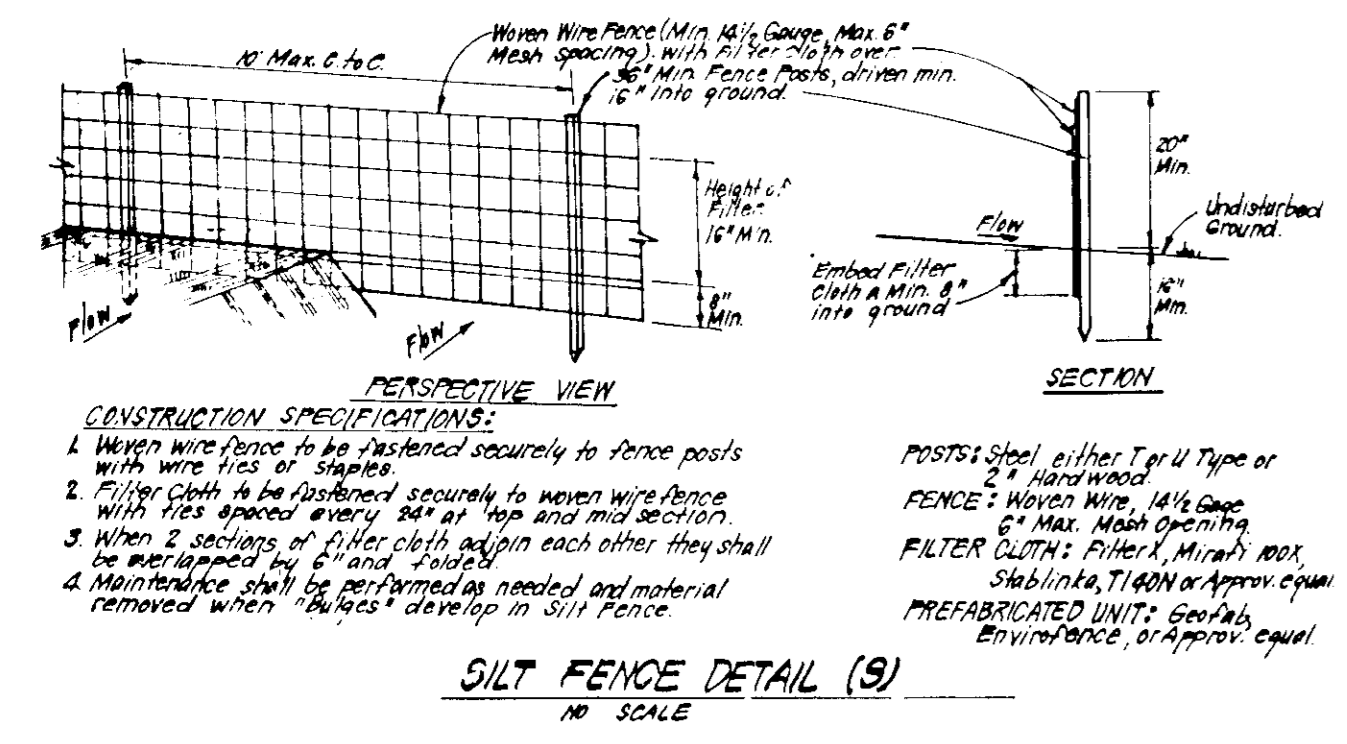 Woven Wire Fence (Min. 14½ Gauge, Max. 6"
Mesh spacing) with Filter Cloth over.
10' Max. C. to C.
36" Min. Fence Posts, driven min.
16" into ground.
Height of
Filter
16" Min.
8"
Min.
Flow
Flow
PERSPECTIVE VIEW
20"
Min.
Undisturbed
Ground.
Flow
Embed Filter
Cloth a Min. 8"
into ground
16"
Min.
SECTION
CONSTRUCTION SPECIFICATIONS:
1. Woven wire fence to be fastened securely to fence posts
with wire ties or staples.
2. Filter Cloth to be fastened securely to woven wire fence
with ties spaced every 24" at top and mid section.
3. When 2 sections of filter cloth adjoin each other they shall
be overlapped by 6" and folded.
4. Maintenance shall be performed as needed and material
removed when "Bulges" develop in Silt Fence.
POSTS: Steel either T or U Type or
2" Hardwood.
FENCE: Woven Wire, 14½ Gage
6" Max. Mesh Opening.
FILTER CLOTH: Filter X, Mirafi 100X,
Stablinka, T140N or Approv. equal.
PREFABRICATED UNIT: Geofab,
Envirofence, or Approv. equal.
SILT FENCE DETAIL (S)
NO SCALE